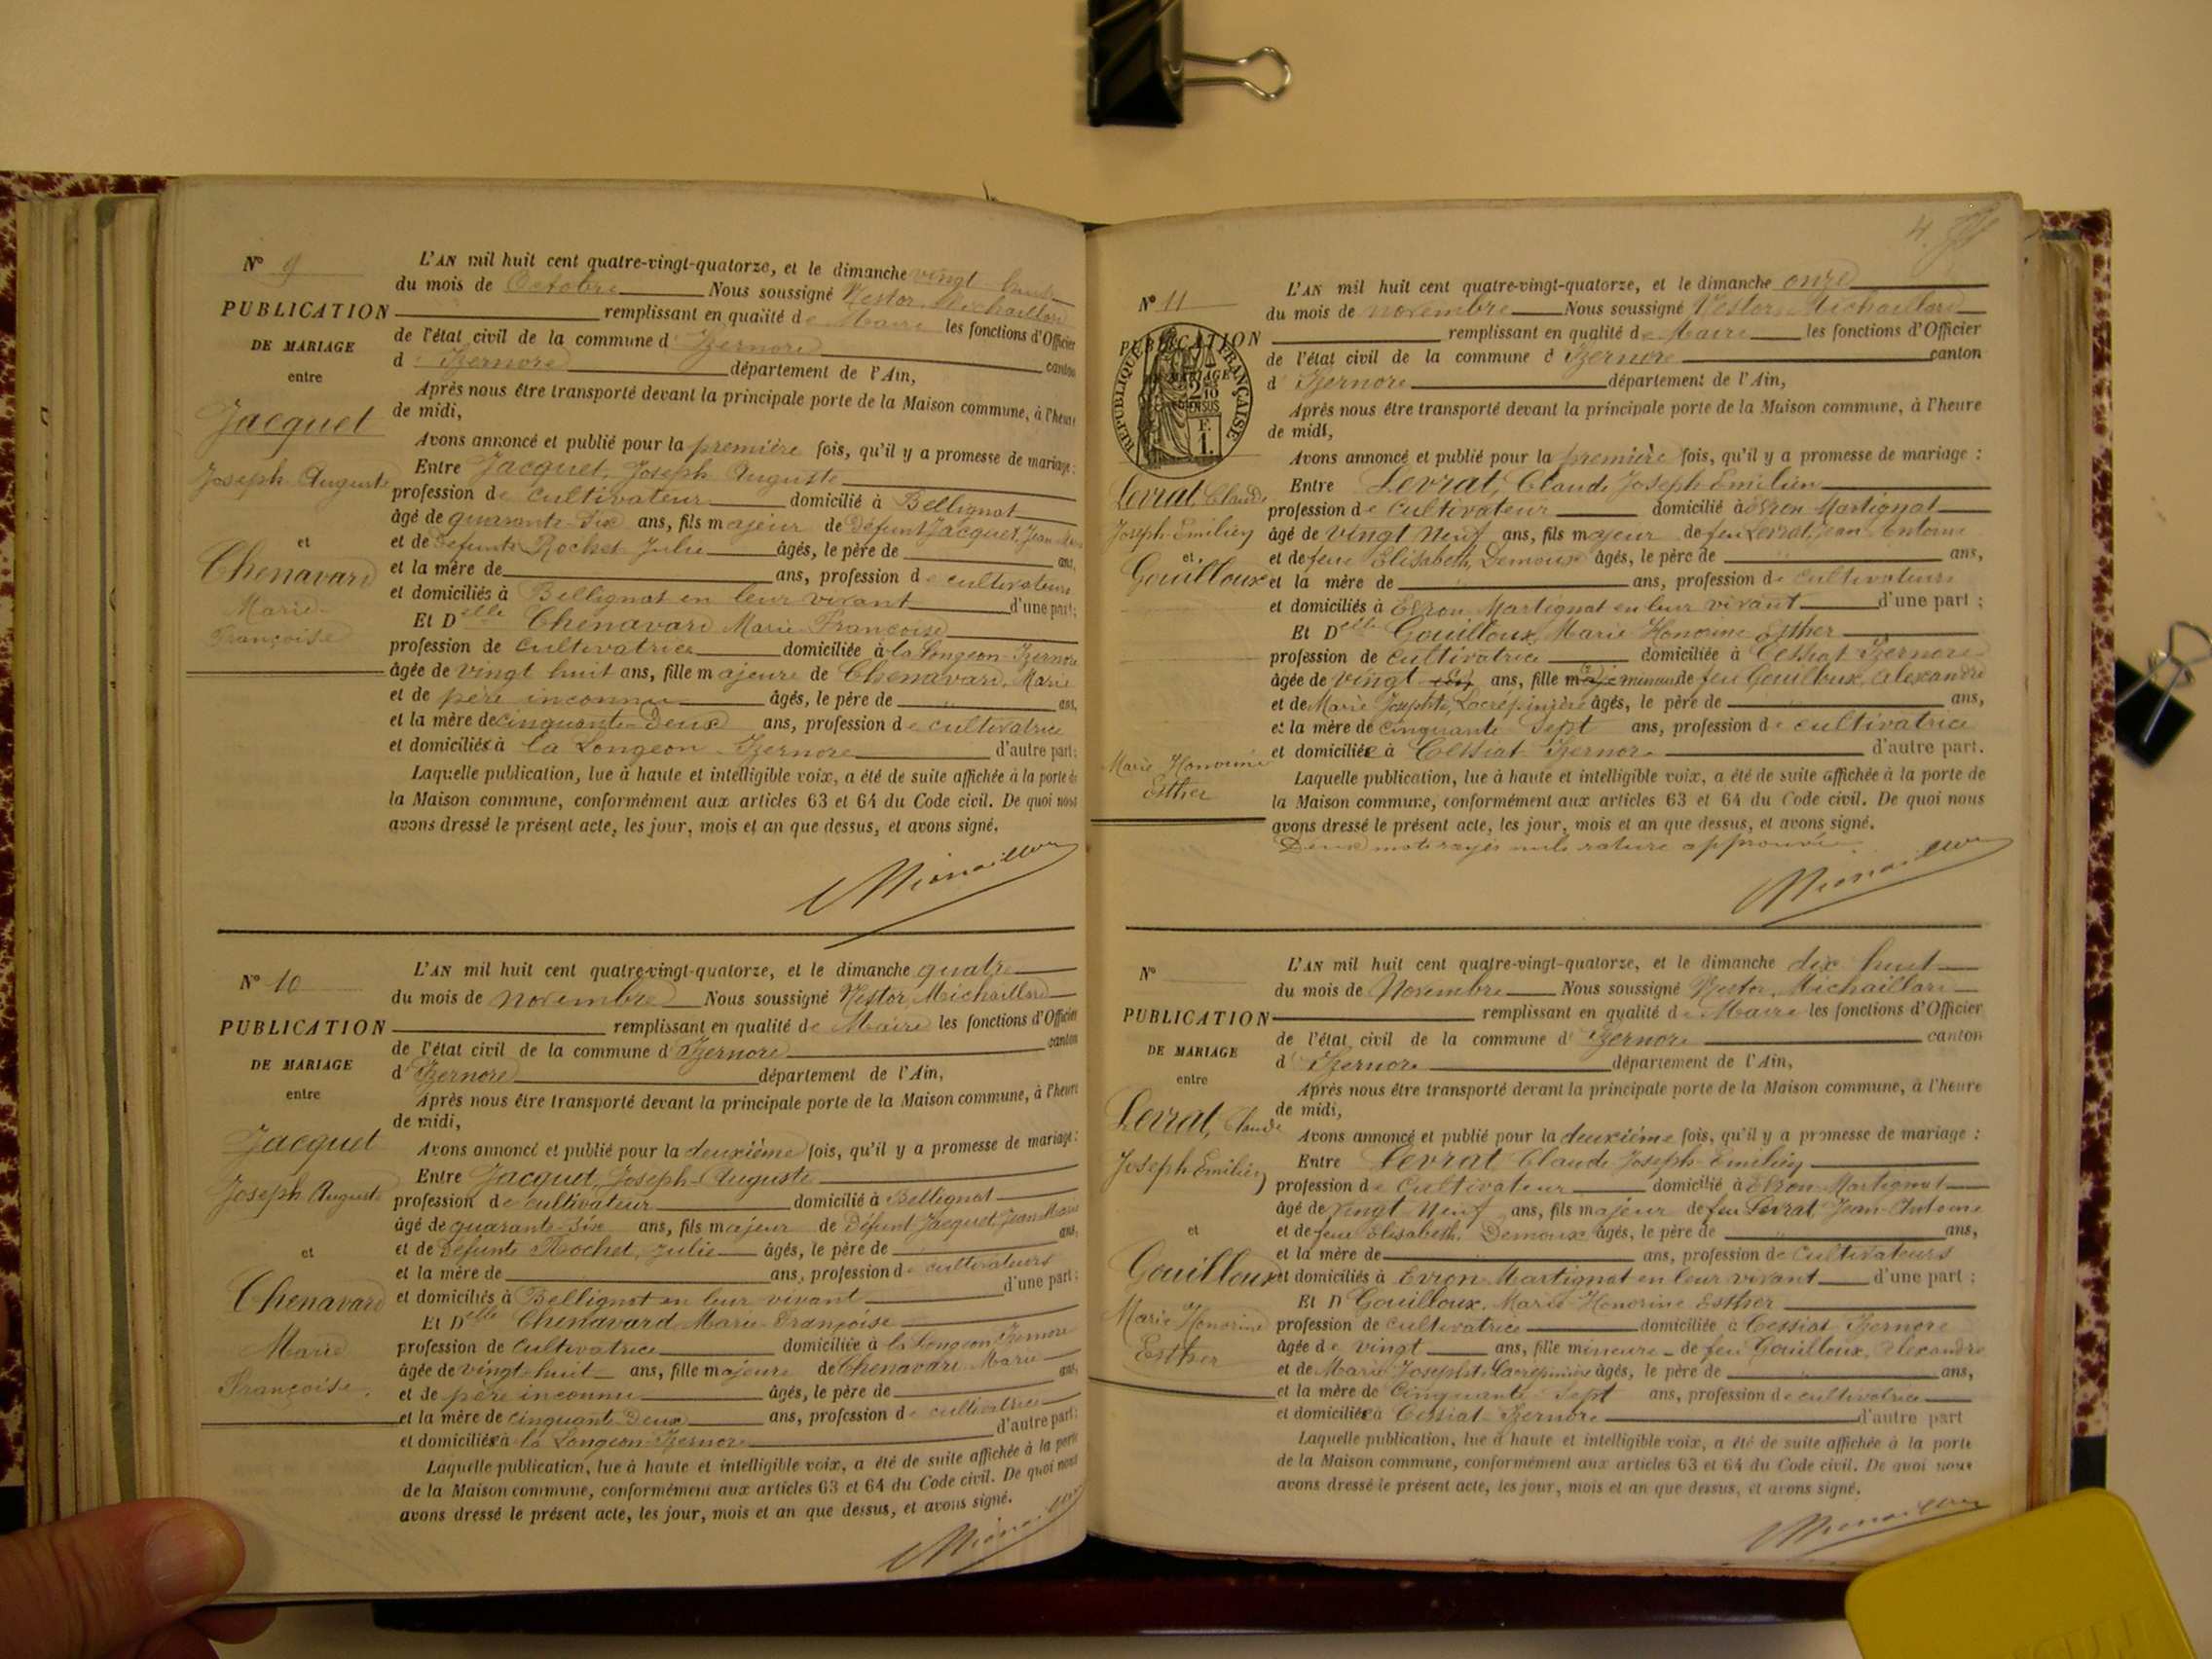 N° 9
PUBLICATION
DE MARIAGE
entre
Jacquet
Joseph Auguste
et
Chenavard
Marie
Françoise
L'AN mil huit cent quatre-vingt-quatorze, et le dimanche vingt huit
du mois de Octobre Nous soussigné Nestor Michaillard
remplissant en qualité de Maire les fonctions d'Officier
de l'état civil de la commune d'Izernore canton
d'Izernore département de l'Ain,
Après nous être transporté devant la principale porte de la Maison commune, à l'heure
de midi,
Avons annoncé et publié pour la première fois, qu'il y a promesse de mariage :
Entre Jacquet, Joseph Auguste
profession de cultivateur domicilié à Bellignat
âgé de quarante-six ans, fils majeur de défunt Jacquet, Jean
et de défunte Rochet Julie âgés, le père de ans,
et la mère de ans, profession de cultivateurs
et domiciliés à Bellignat en leur vivant d'une part;
Et Delle Chenavard Marie Françoise
profession de cultivatrice domiciliée à la Longeon-Izernore
âgée de vingt huit ans, fille majeure de Chenavard, Marie
et de père inconnu âgés, le père de ans,
et la mère de cinquante-deux ans, profession de cultivatrice
et domiciliés à la Longeon-Izernore d'autre part;
Laquelle publication, lue à haute et intelligible voix, a été de suite affichée à la porte de
la Maison commune, conformément aux articles 63 et 64 du Code civil. De quoi nous
avons dressé le présent acte, les jour, mois et an que dessus, et avons signé.
N° 10
PUBLICATION
DE MARIAGE
entre
Jacquet
Joseph Auguste
et
Chenavard
Marie
Françoise.
L'AN mil huit cent quatre-vingt-quatorze, et le dimanche quatre
du mois de novembre Nous soussigné Nestor, Michaillard
remplissant en qualité de Maire les fonctions d'Officier
de l'état civil de la commune d'Izernore canton
d'Izernore département de l'Ain,
Après nous être transporté devant la principale porte de la Maison commune, à l'heure
de midi,
Avons annoncé et publié pour la deuxième fois, qu'il y a promesse de mariage :
Entre Jacquet, Joseph-Auguste
profession de cultivateur domicilié à Bellignat
âgé de quarante-six ans, fils majeur de défunt Jacquet, Jean
et de défunte Rochet, Julie âgés, le père de ans,
et la mère de ans, profession de cultivateurs
et domiciliés à Bellignat en leur vivant d'une part;
Et Delle Chenavard Marie Françoise
profession de cultivatrice domiciliée à la Longeon Izernore
âgée de vingt-huit ans, fille majeure de Chenavard Marie
et de père inconnu âgés, le père de ans,
et la mère de cinquante deux ans, profession de cultivatrice
et domiciliés à la Longeon-Izernore d'autre part;
Laquelle publication, lue à haute et intelligible voix, a été de suite affichée à la porte
de la Maison commune, conformément aux articles 63 et 64 du Code civil. De quoi nous
avons dressé le présent acte, les jour, mois et an que dessus, et avons signé.
4.
N° 11
PUBLICATION
DE MARIAGE
RÉPUBLIQUE FRANÇAISE
Levrat, Claude
Joseph-Emilien
et
Gouilloux
Marie Honorine
Esther
L'AN mil huit cent quatre-vingt-quatorze, et le dimanche onze
du mois de novembre Nous soussigné Nestor Michaillard
remplissant en qualité de Maire les fonctions d'Officier
de l'état civil de la commune d'Izernore canton
d'Izernore département de l'Ain,
Après nous être transporté devant la principale porte de la Maison commune, à l'heure
de midi,
Avons annoncé et publié pour la première fois, qu'il y a promesse de mariage :
Entre Levrat, Claude Joseph Emilien
profession de cultivateur domicilié à Evron Martignat
âgé de vingt neuf ans, fils majeur de feu Levrat, Jean Antoine
et de feue Elisabeth, Demoux âgés, le père de ans,
et la mère de ans, profession de cultivateurs
et domiciliés à Evron Martignat en leur vivant d'une part ;
Et Delle Gouilloux, Marie Honorine Esther
profession de cultivatrice domiciliée à Cessiat Izernore
âgée de vingt ans, fille mineure de feu Gouilloux, Alexandre
et de Marie Josephte, Lacrépinière âgés, le père de ans,
et la mère de cinquante sept ans, profession de cultivatrice
et domiciliée à Cessiat Izernore d'autre part.
Laquelle publication, lue à haute et intelligible voix, a été de suite affichée à la porte de
la Maison commune, conformément aux articles 63 et 64 du Code civil. De quoi nous
avons dressé le présent acte, les jour, mois et an que dessus, et avons signé.
Deux mots rayés nuls rature approuvée
N°
PUBLICATION
DE MARIAGE
entre
Levrat, Claude
Joseph Emilien
et
Gouilloux
Marie Honorine
Esther
L'AN mil huit cent quatre-vingt-quatorze, et le dimanche dix huit
du mois de Novembre Nous soussigné Nestor, Michaillard
remplissant en qualité de Maire les fonctions d'Officier
de l'état civil de la commune d'Izernore canton
d'Izernore département de l'Ain,
Après nous être transporté devant la principale porte de la Maison commune, à l'heure
de midi,
Avons annoncé et publié pour la deuxième fois, qu'il y a promesse de mariage :
Entre Levrat Claude Joseph-Emilien
profession de cultivateur domicilié à Evron-Martignat
âgé de vingt-neuf ans, fils majeur de feu Levrat, Jean-Antoine
et de feue Elisabeth, Demoux âgés, le père de ans,
et la mère de ans, profession de cultivateurs
et domiciliés à Evron Martignat en leur vivant d'une part ;
Et D Gouilloux, Marie-Honorine Esther
profession de cultivatrice domiciliée à Cessiat-Izernore
âgée de vingt ans, fille mineure de feu Gouilloux, Alexandre
et de Marie Josephte Lacrépinière âgés, le père de ans,
et la mère de cinquante-sept ans, profession de cultivatrice
et domiciliée à Cessiat-Izernore d'autre part
Laquelle publication, lue à haute et intelligible voix, a été de suite affichée à la porte
de la Maison commune, conformément aux articles 63 et 64 du Code civil. De quoi nous
avons dressé le présent acte, les jour, mois et an que dessus, et avons signé.